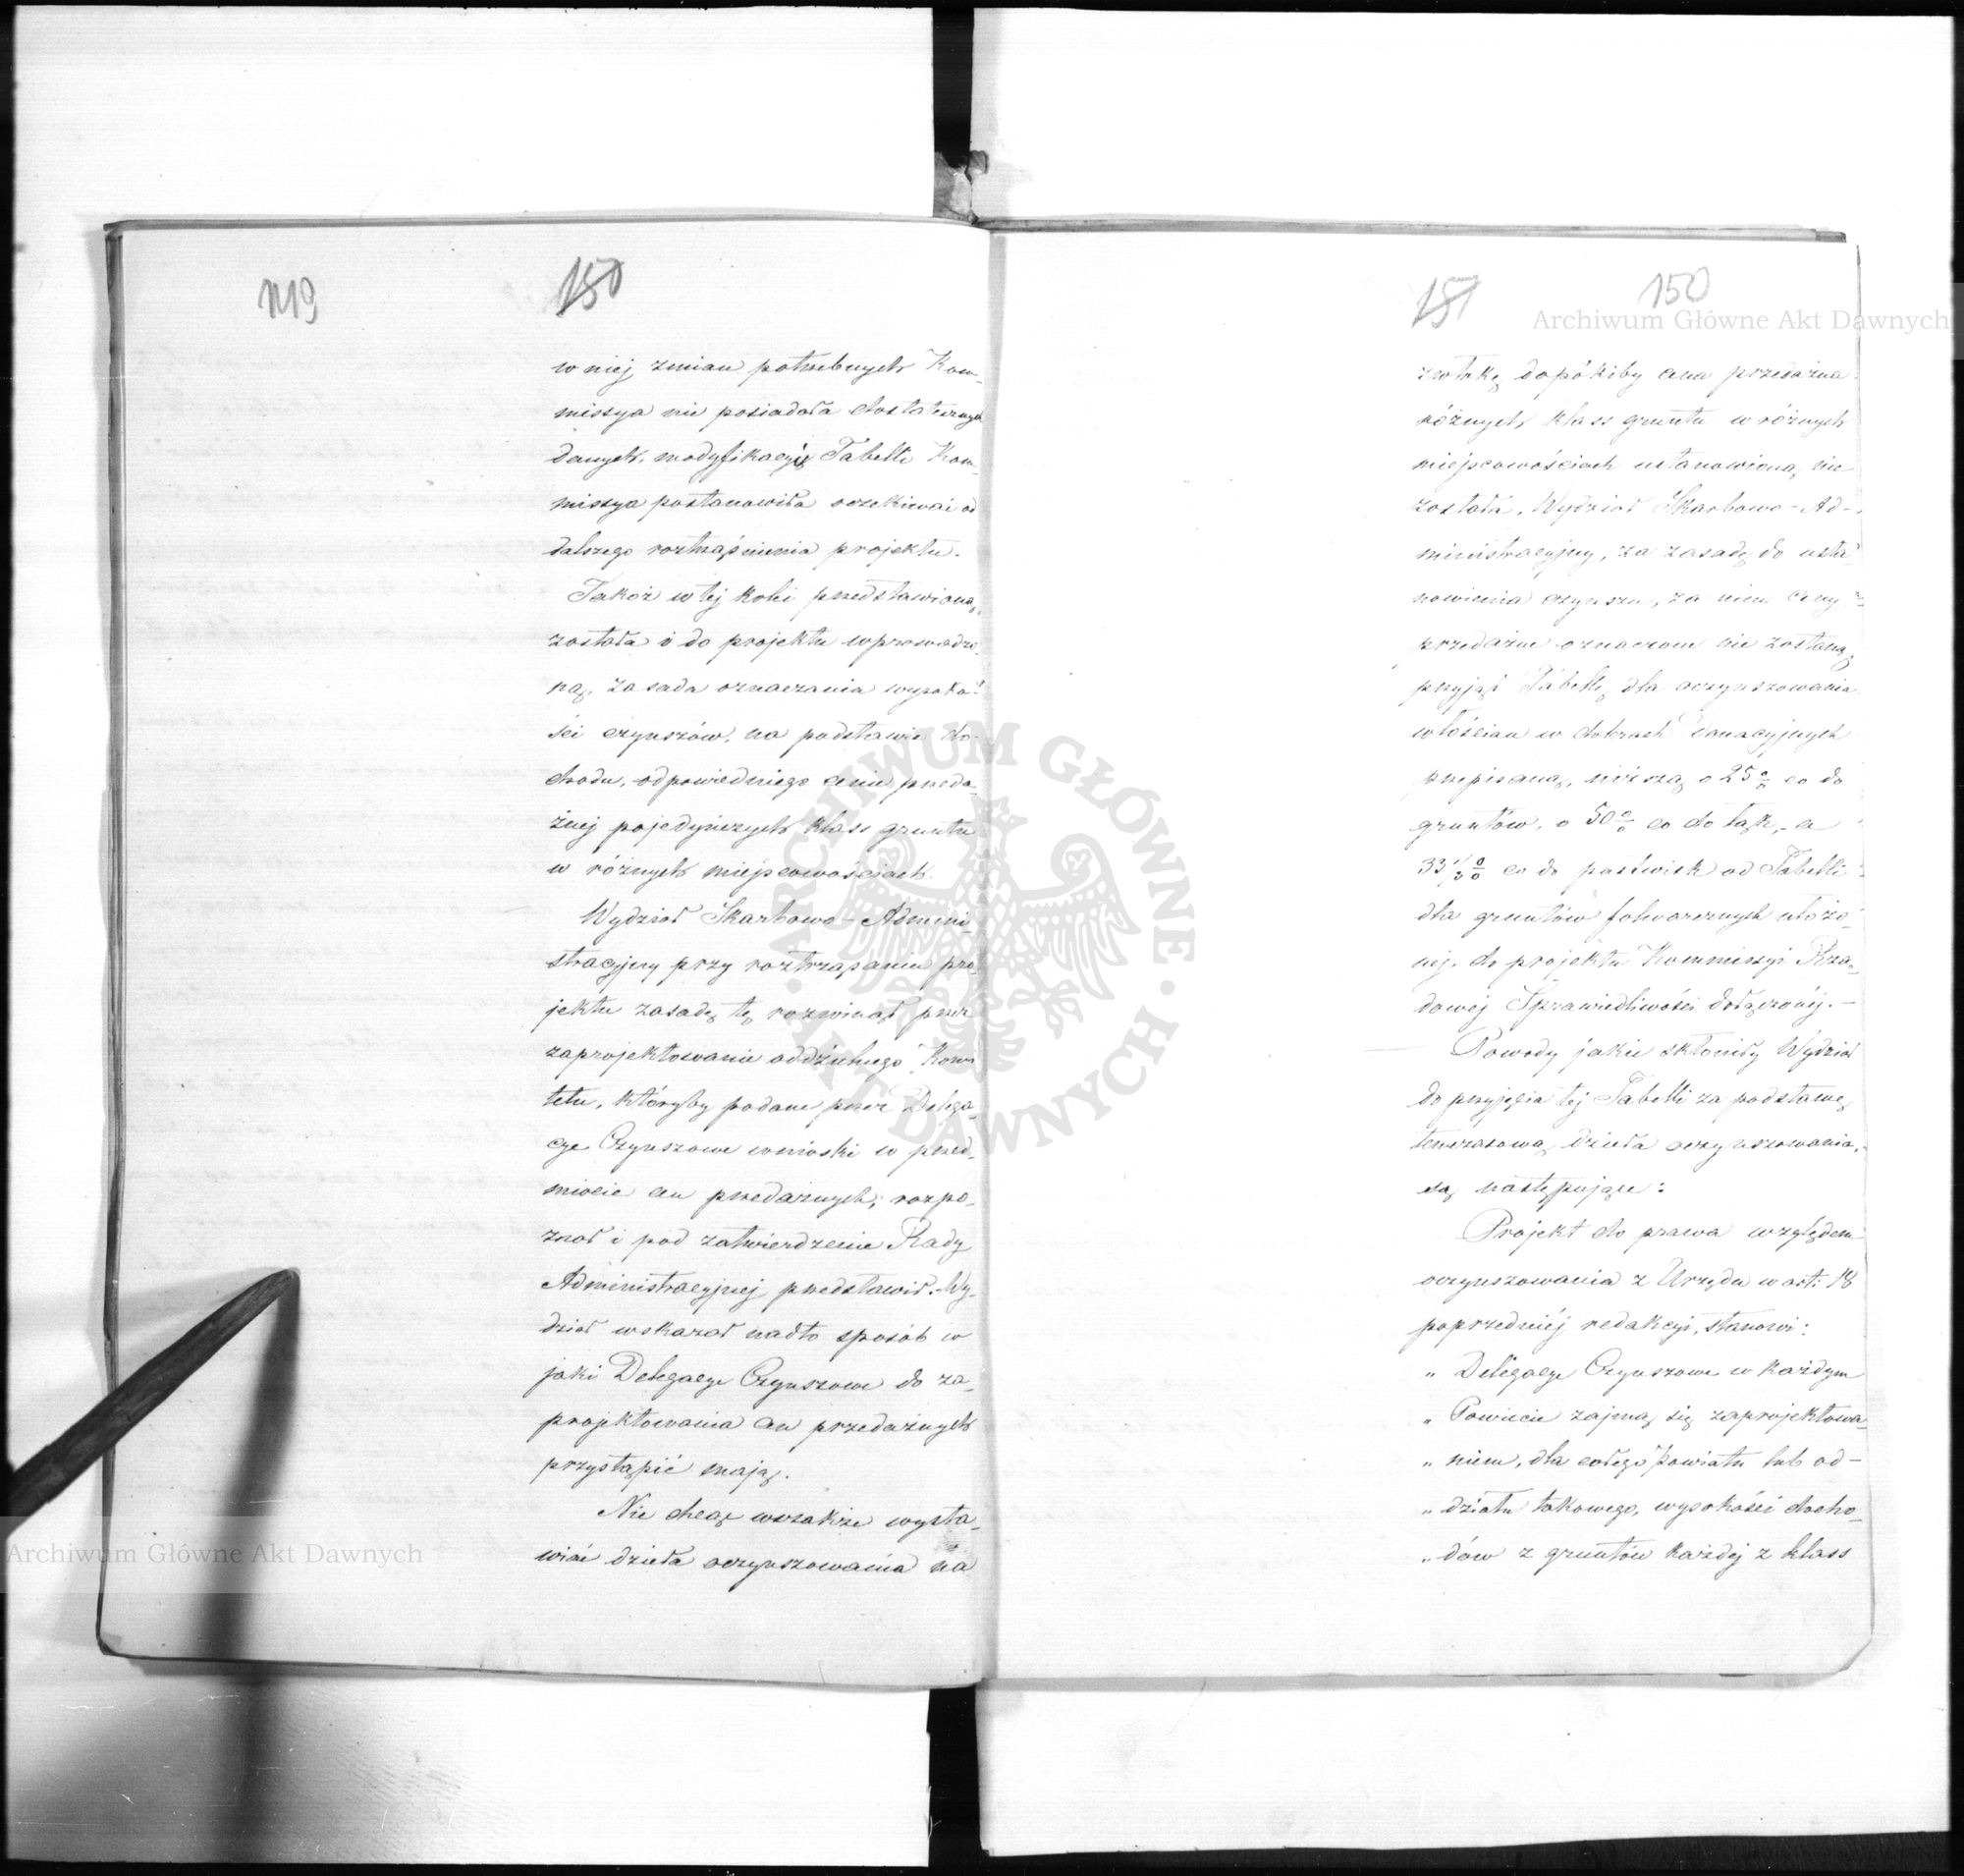 149 150
w niej zmian potrzebnych Kom-
missya nie posiadała dostatecznych
danych, modyfikacyję Tabelli Kom-
missya postanowiła oczekiwać od
dalszego roztrząśnienia projektu.
Jakoż w tej kolei przedstawioną
została i do projektu wprowadzo-
ną, zasada oznaczania wysoko-
ści czynszów, na podstawie do-
chodu, odpowiedniego cenie przeda-
żnej pojedyńczych klass gruntu
w różnych miejscowościach.
Wydział Skarbowo-Admini-
stracyjny przy roztrząsaniu pro-
jektu zasadę tę rozwinął przez
zaprojektowanie oddzielnego Komi
tetu, któryby podane przez Delega-
cye Czynszowe wnioski w przed-
miocie cen przedażnych, rozpo-
znał i pod zatwierdzenie Rady
Administracyjnej przedstawił. Wy-
dział wskazał nadto sposób w
jaki Delegacye Czynszowe do za-
projektowania cen przedażnych
przystąpić mają.
Nie chcąc wszakże wysta-
wiać dzieła oczynszowania na
151 150
zwłokę dopókiby cena przedażna
różnych klass gruntu w różnych
miejscowościach ustanowioną nie
została, Wydział Skarbowo-Ad-
ministracyjny, za zasadę do usta-
nowienia czynszu, za nim Ceny
przedażne oznaczone nie zostaną,
przyjął Tabellę dla oczynszowania
włościan w dobrach Donacyjnych
przepisaną, niższą o 25% co do
gruntów, o 50% co do łąk, a
33 1/3% co do pastwisk od Tabelli
dla gruntów folwarcznych ułożo-
nej, do projektu Kommissyi Rzą-
dowéj Sprawiedliwości dołączonéj.—
Powody jakie skłoniły Wydział
do przyjęcia tej Tabelli za podstawę
tymczasową dzieła oczynszowania,
są następujące:
Projekt do prawa względem
oczynszowania z Urzędu w art: 18
poprzedniéj redakcyi, stanowi:
„ Delegacye Czynszowe w każdym
„ Powiecie zajmą się zaprojektowa-
„ niem, dla całego powiatu lub od-
„ działu takowego, wysokości docho-
„ dów z gruntów każdej z klass
Archiwum Główne Akt Dawnych
Archiwum Główne Akt Dawnych
ARCHIWUM GŁÓWNE AKT DAWNYCH